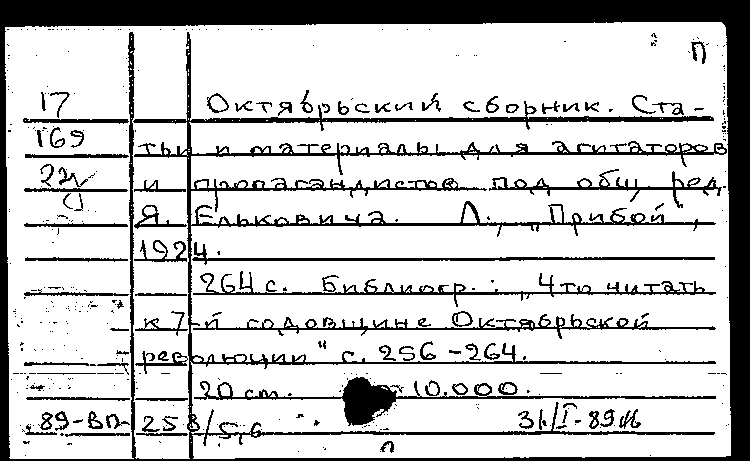 П
17 Октябрьский сборник. Ста-
169 тьи и материалы для агитаторов
и пропагандистов под общ. ред.
Я. Ельковича. Л., „Прибой",
1924.
264 с. Библиогр.: „Что читать
к 7-й годовщине Октябрьской
революции" с. 256-264.
20 см. 10.000.
89-ВП- 258/5,6 31/I-89